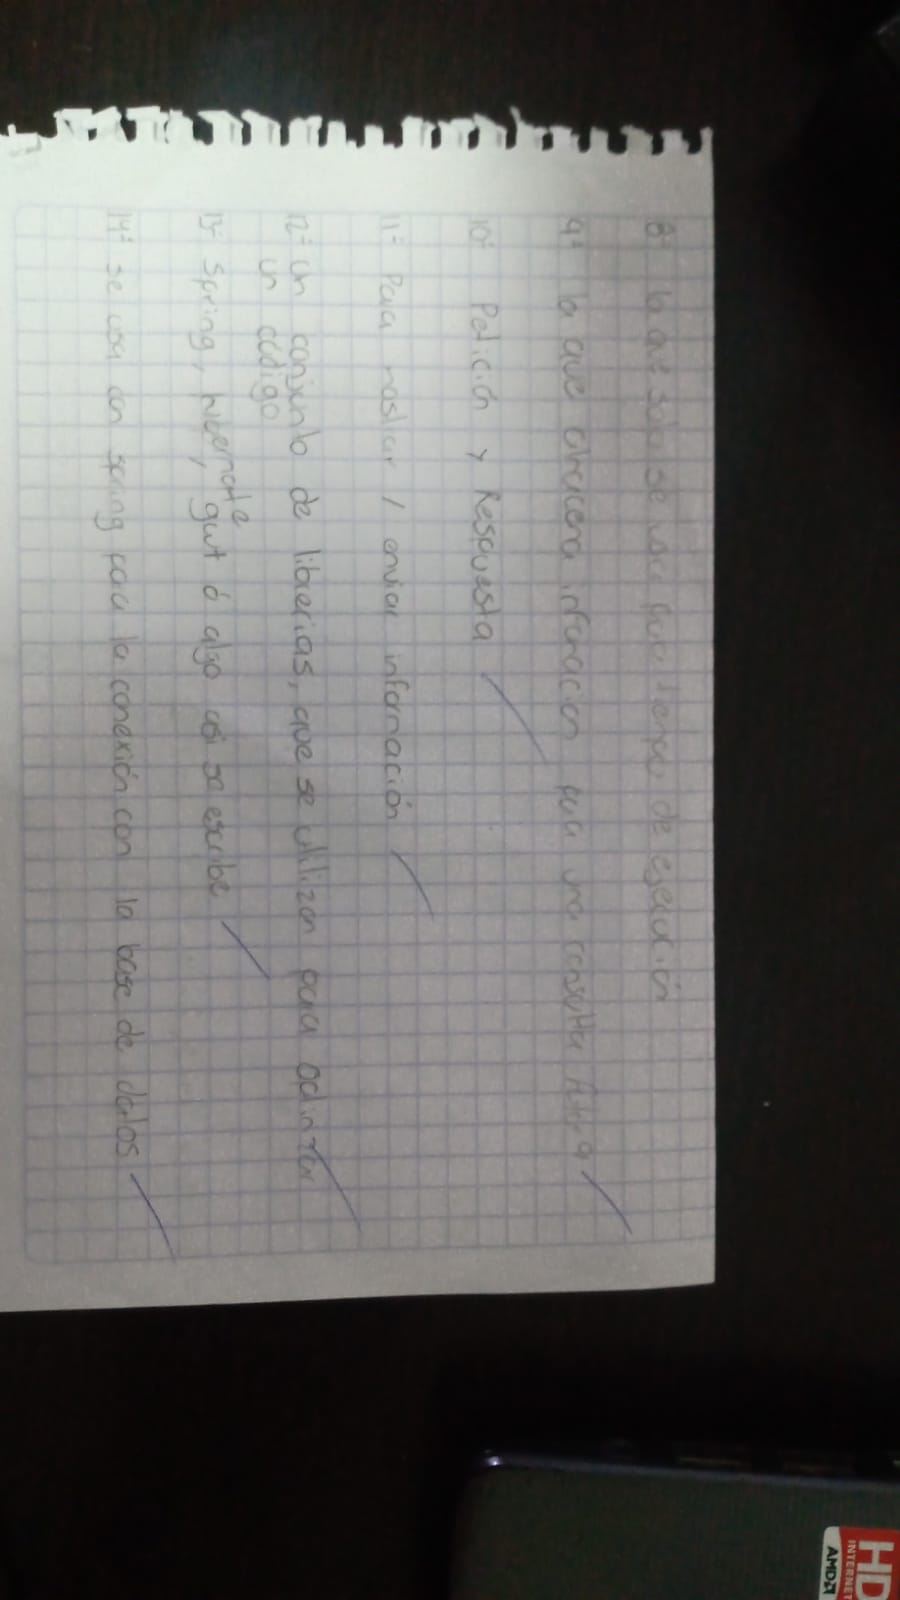 8- la que solo se usa para tiempo de ejecución
9- la que almacena información para una consulta
10- Petición y Respuesta
11- Para mostrar / enviar información
12- un conjunto de librerias, que se utilizan para optimizar
un código
13- Spring, hibernate, gwt ó algo asi se escribe
14- se usa con spring para la conexión con la base de datos
HD
INTERNET
AMD